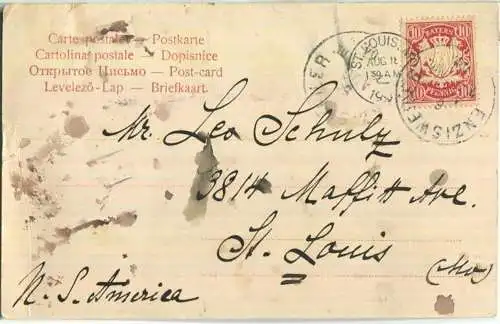 Carte postale — Postkarte
Cartolina postale — Dopisnice
Открытое Письмо — Post-card
Levelező-Lap — Briefkaart.
ST. LOUIS,
AUG 18
130 AM
10 BAYERN 10
10 PFENNIG 10
ENZISWEILER
Mr. Leo Schulz
3814 Maffitt Ave.
St. Louis
(Mo.)
N. S. America